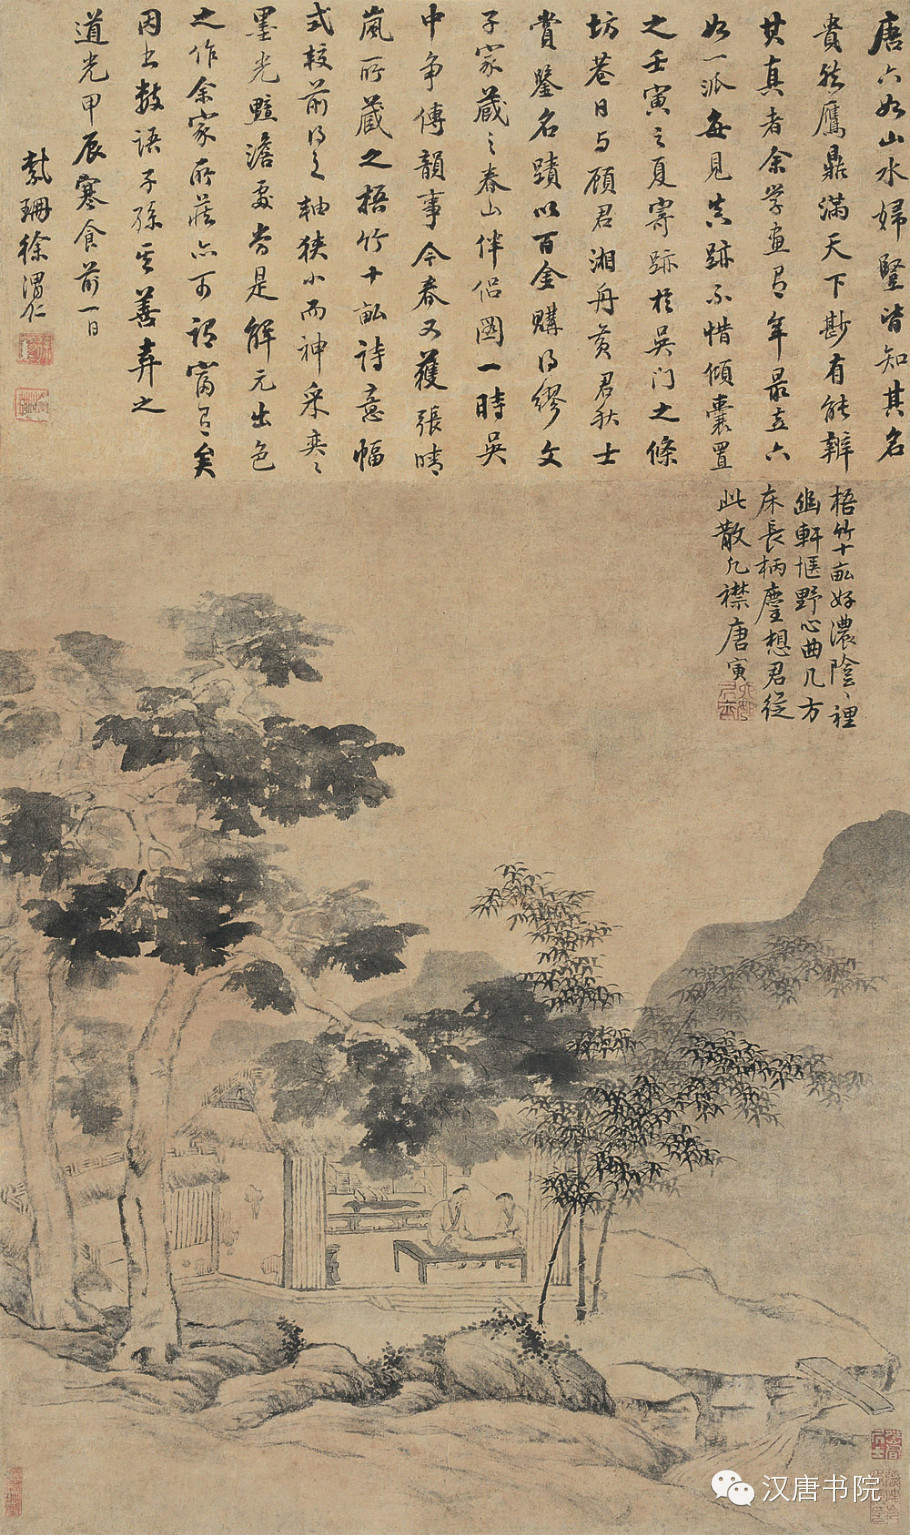 唐六如山水婦豎皆知其名
貴然鷹鼎滿天下尠有能辨
其真者余學畫有年最立六
如一派每見真跡不惜傾囊置
之壬寅之夏寄跡於吳门之條
坊巷日与顧君湘舟黄君秋士
賞鑒名蹟以百金購得繆文
子家藏之春山伴侣圖一時吳
中争傳韻事今春又獲張晴
嵐所藏之梧竹十畝詩意幅
式較前得之軸狭小而神采奕〻
墨光黯澹處尚是解元出色
之作余家所藏亦可謂富有矣
因书数語子孫其善弆之
道光甲辰寒食前一日
紫珊徐渭仁
梧竹十畝好濃陰〻裡
幽軒愜野心曲几方
床長柄麈想君從
此散凡襟唐寅
汉唐书院